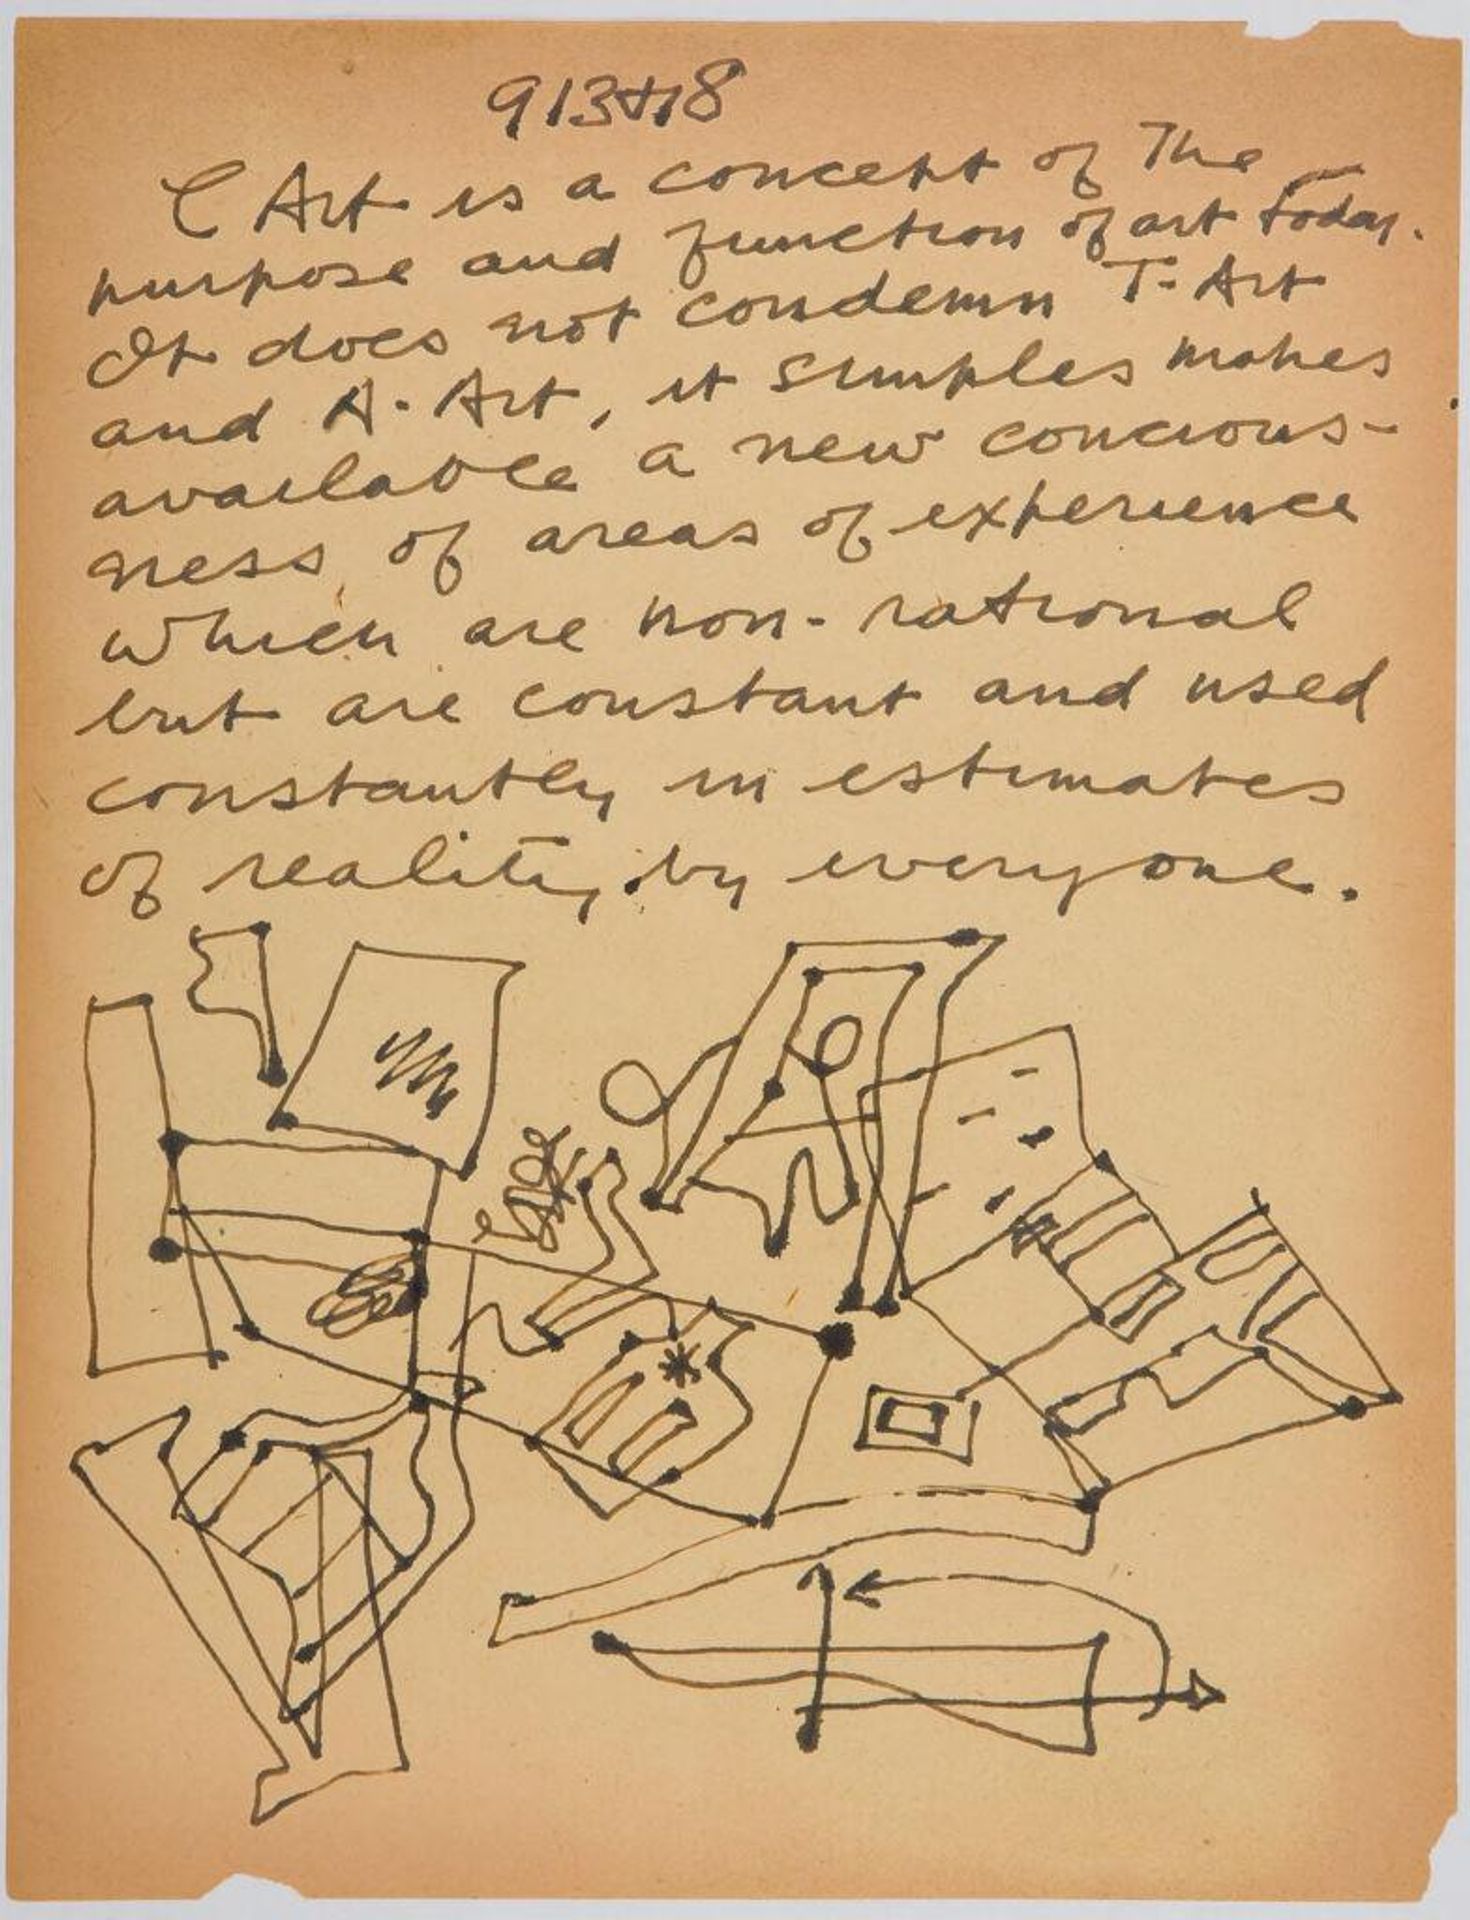 913+18
C Art is a concept of The
purpose and function of art today.
It does not condemn T-Art
and A-Art, it simples makes
available a new concious-
ness of areas of experience
which are non-rational
but are constant and used
constantly in estimates
of reality by everyone.